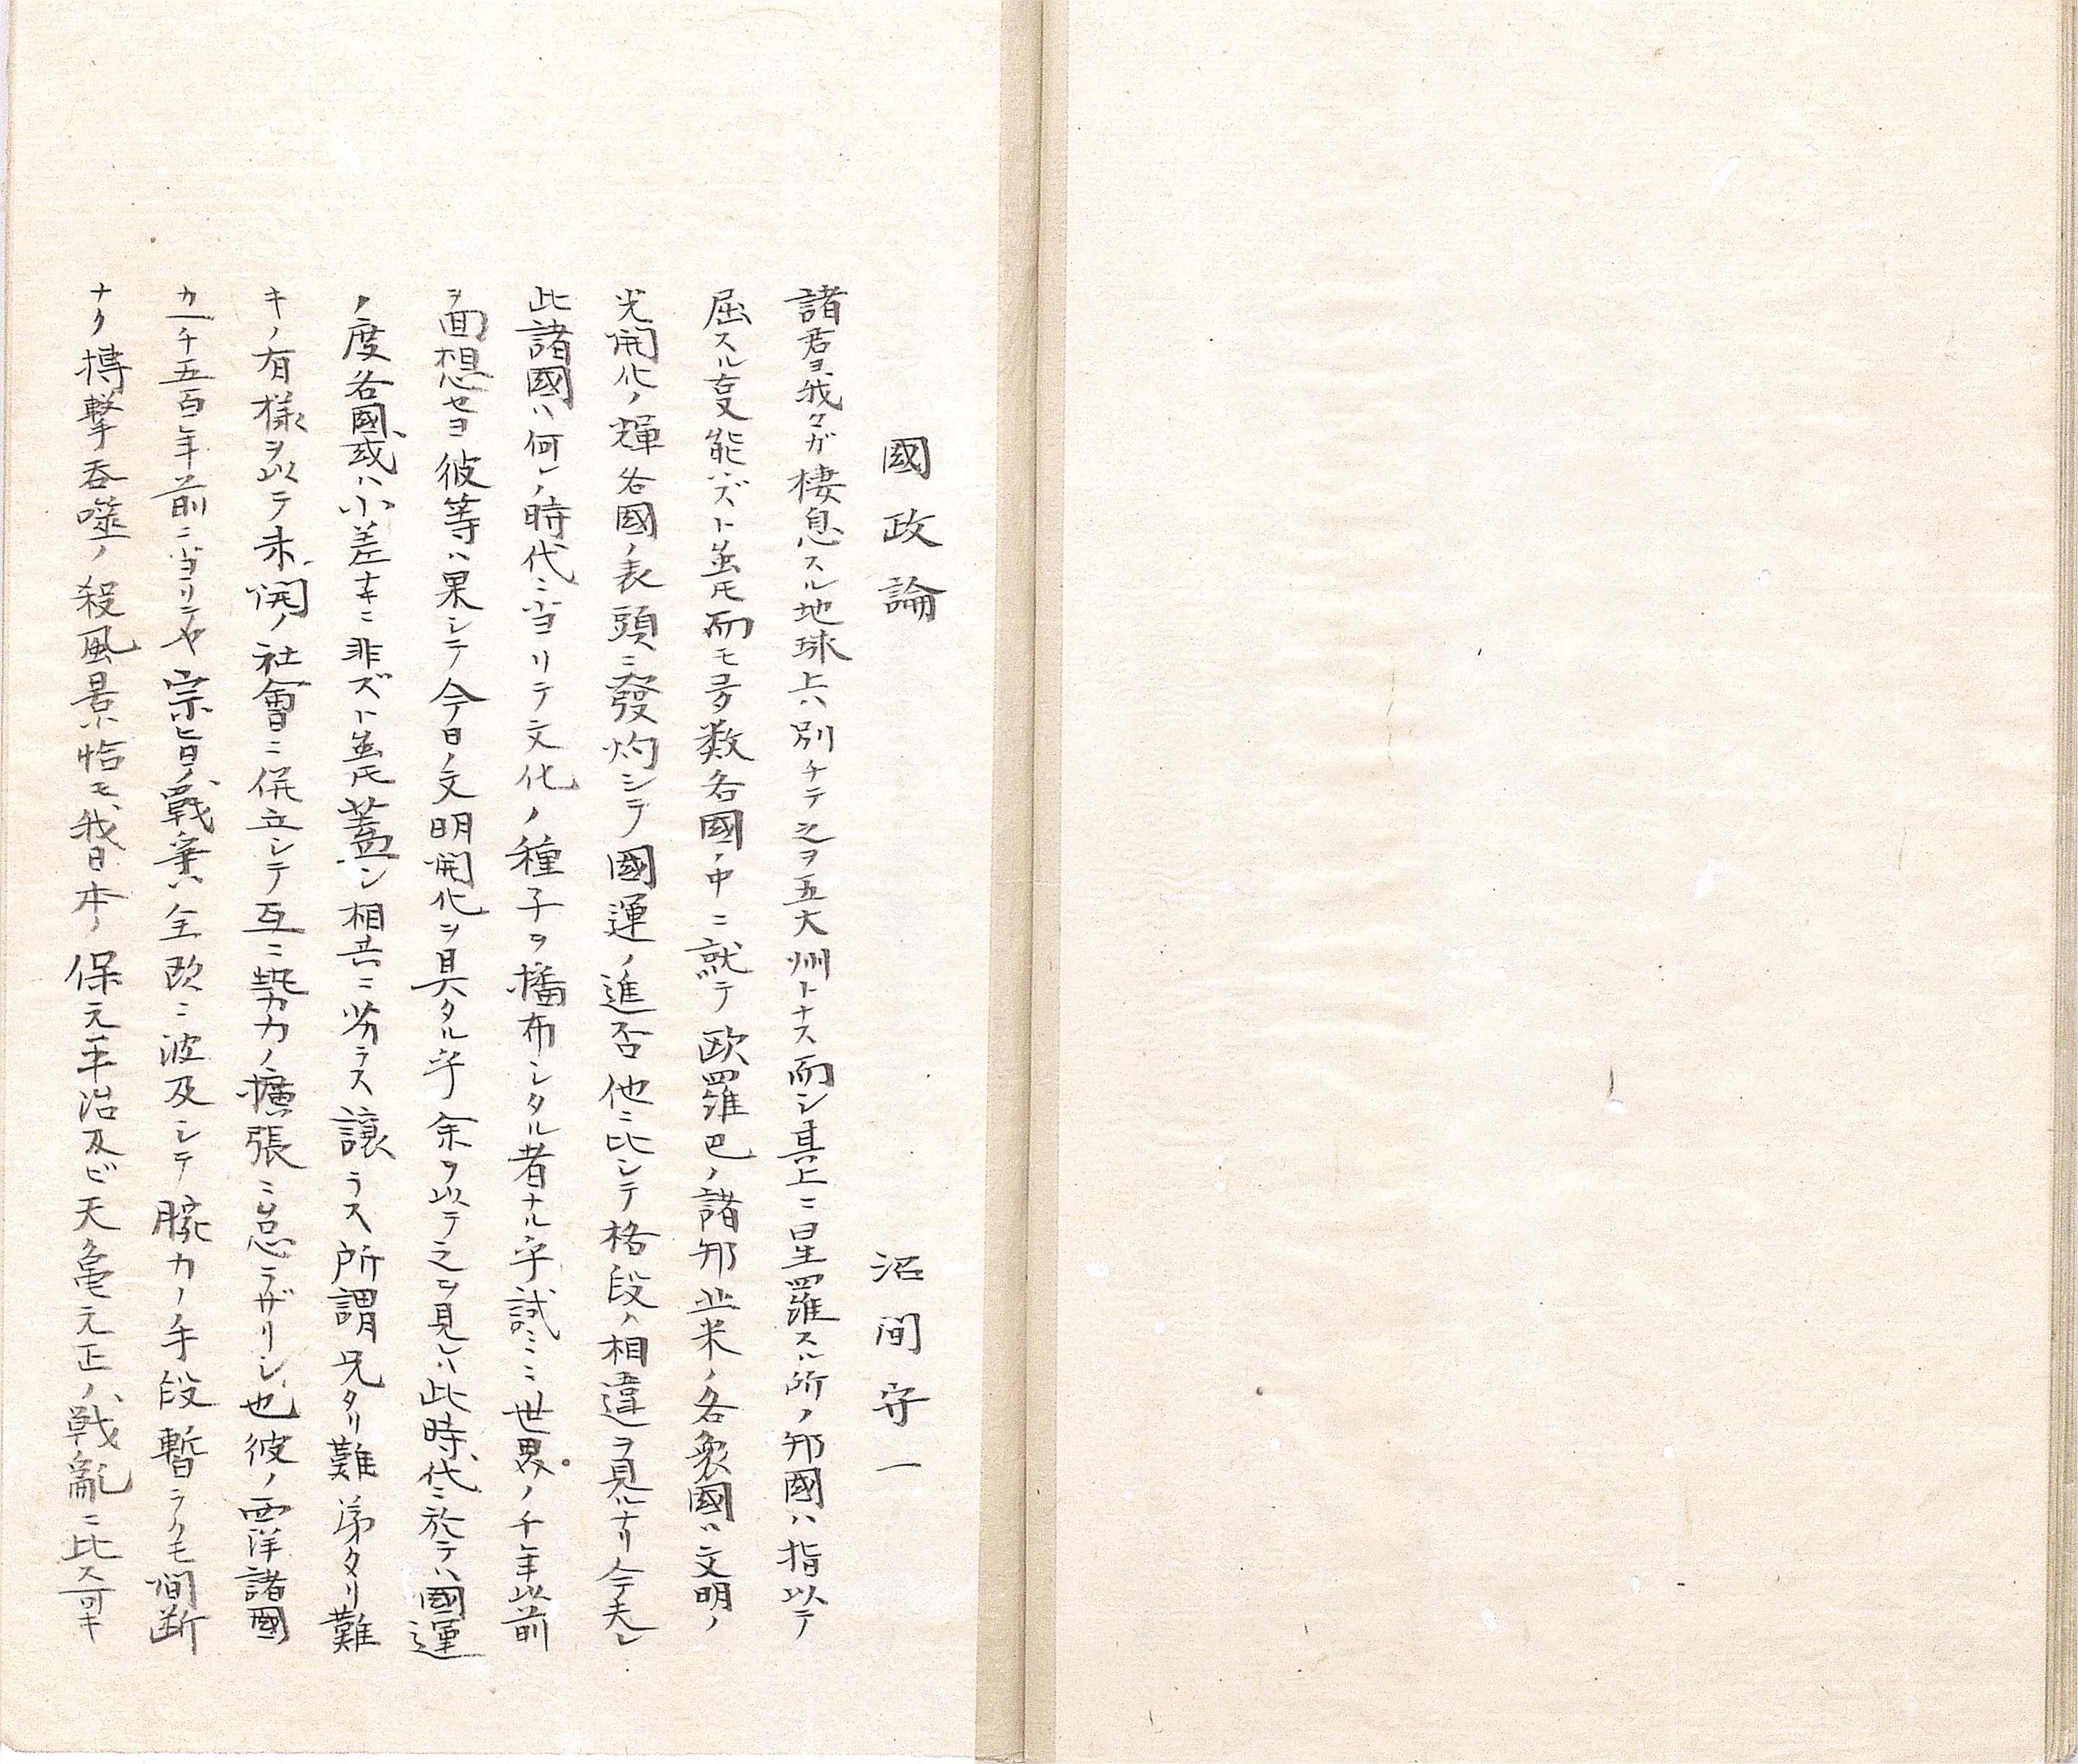 國政論
沼間守一
諸君ヨ我々ガ棲息スル地球上ハ別チテ之ヲ五大州トナス而シ其上ニ星羅スル所ノ邦國ハ指以テ
屈スル叓能ハズト䒾𪜈而モ号数各國ノ中ニ就テ欧羅巴ノ諸邦北米ノ各衆國ハ文明ノ
光開化ノ輝各國ノ表頭ニ發灼シテ國運ノ進否他ニ比シテ格段ノ相違ヲ見ルナリ今夫レ
此諸國ハ何レノ時代ニ当リテ文化ノ種子ヲ播布シタル者ナル乎試ミニ世界ノ千年以前
ヲ面想セヨ彼等ハ果シテ今日ノ文明開化ヲ具タル乎余ヲ以テ之ヲ見レハ此時代ニ於テハ國運
ノ度各國或ハ小差ナキニ非ズト䒾𪜈蓋シ相共ニ劣ラス譲ラス所謂兄タリ難弟タリ難
キノ有様ヲ以テ未開ノ社會ニ併立シテ互ニ勢力ノ擴張ニ怠ラザリシ也彼ノ西洋諸國
カ一千五百年前ニ当リテヤ宗旨ノ戰争ハ全欧ニ波及シテ腕力ノ手段暫ラクモ間断
ナク搏撃呑噬ノ殺風景ハ恰モ我日本ノ保元平治及ビ天亀元正ノ戦亂ニ比ス可キ